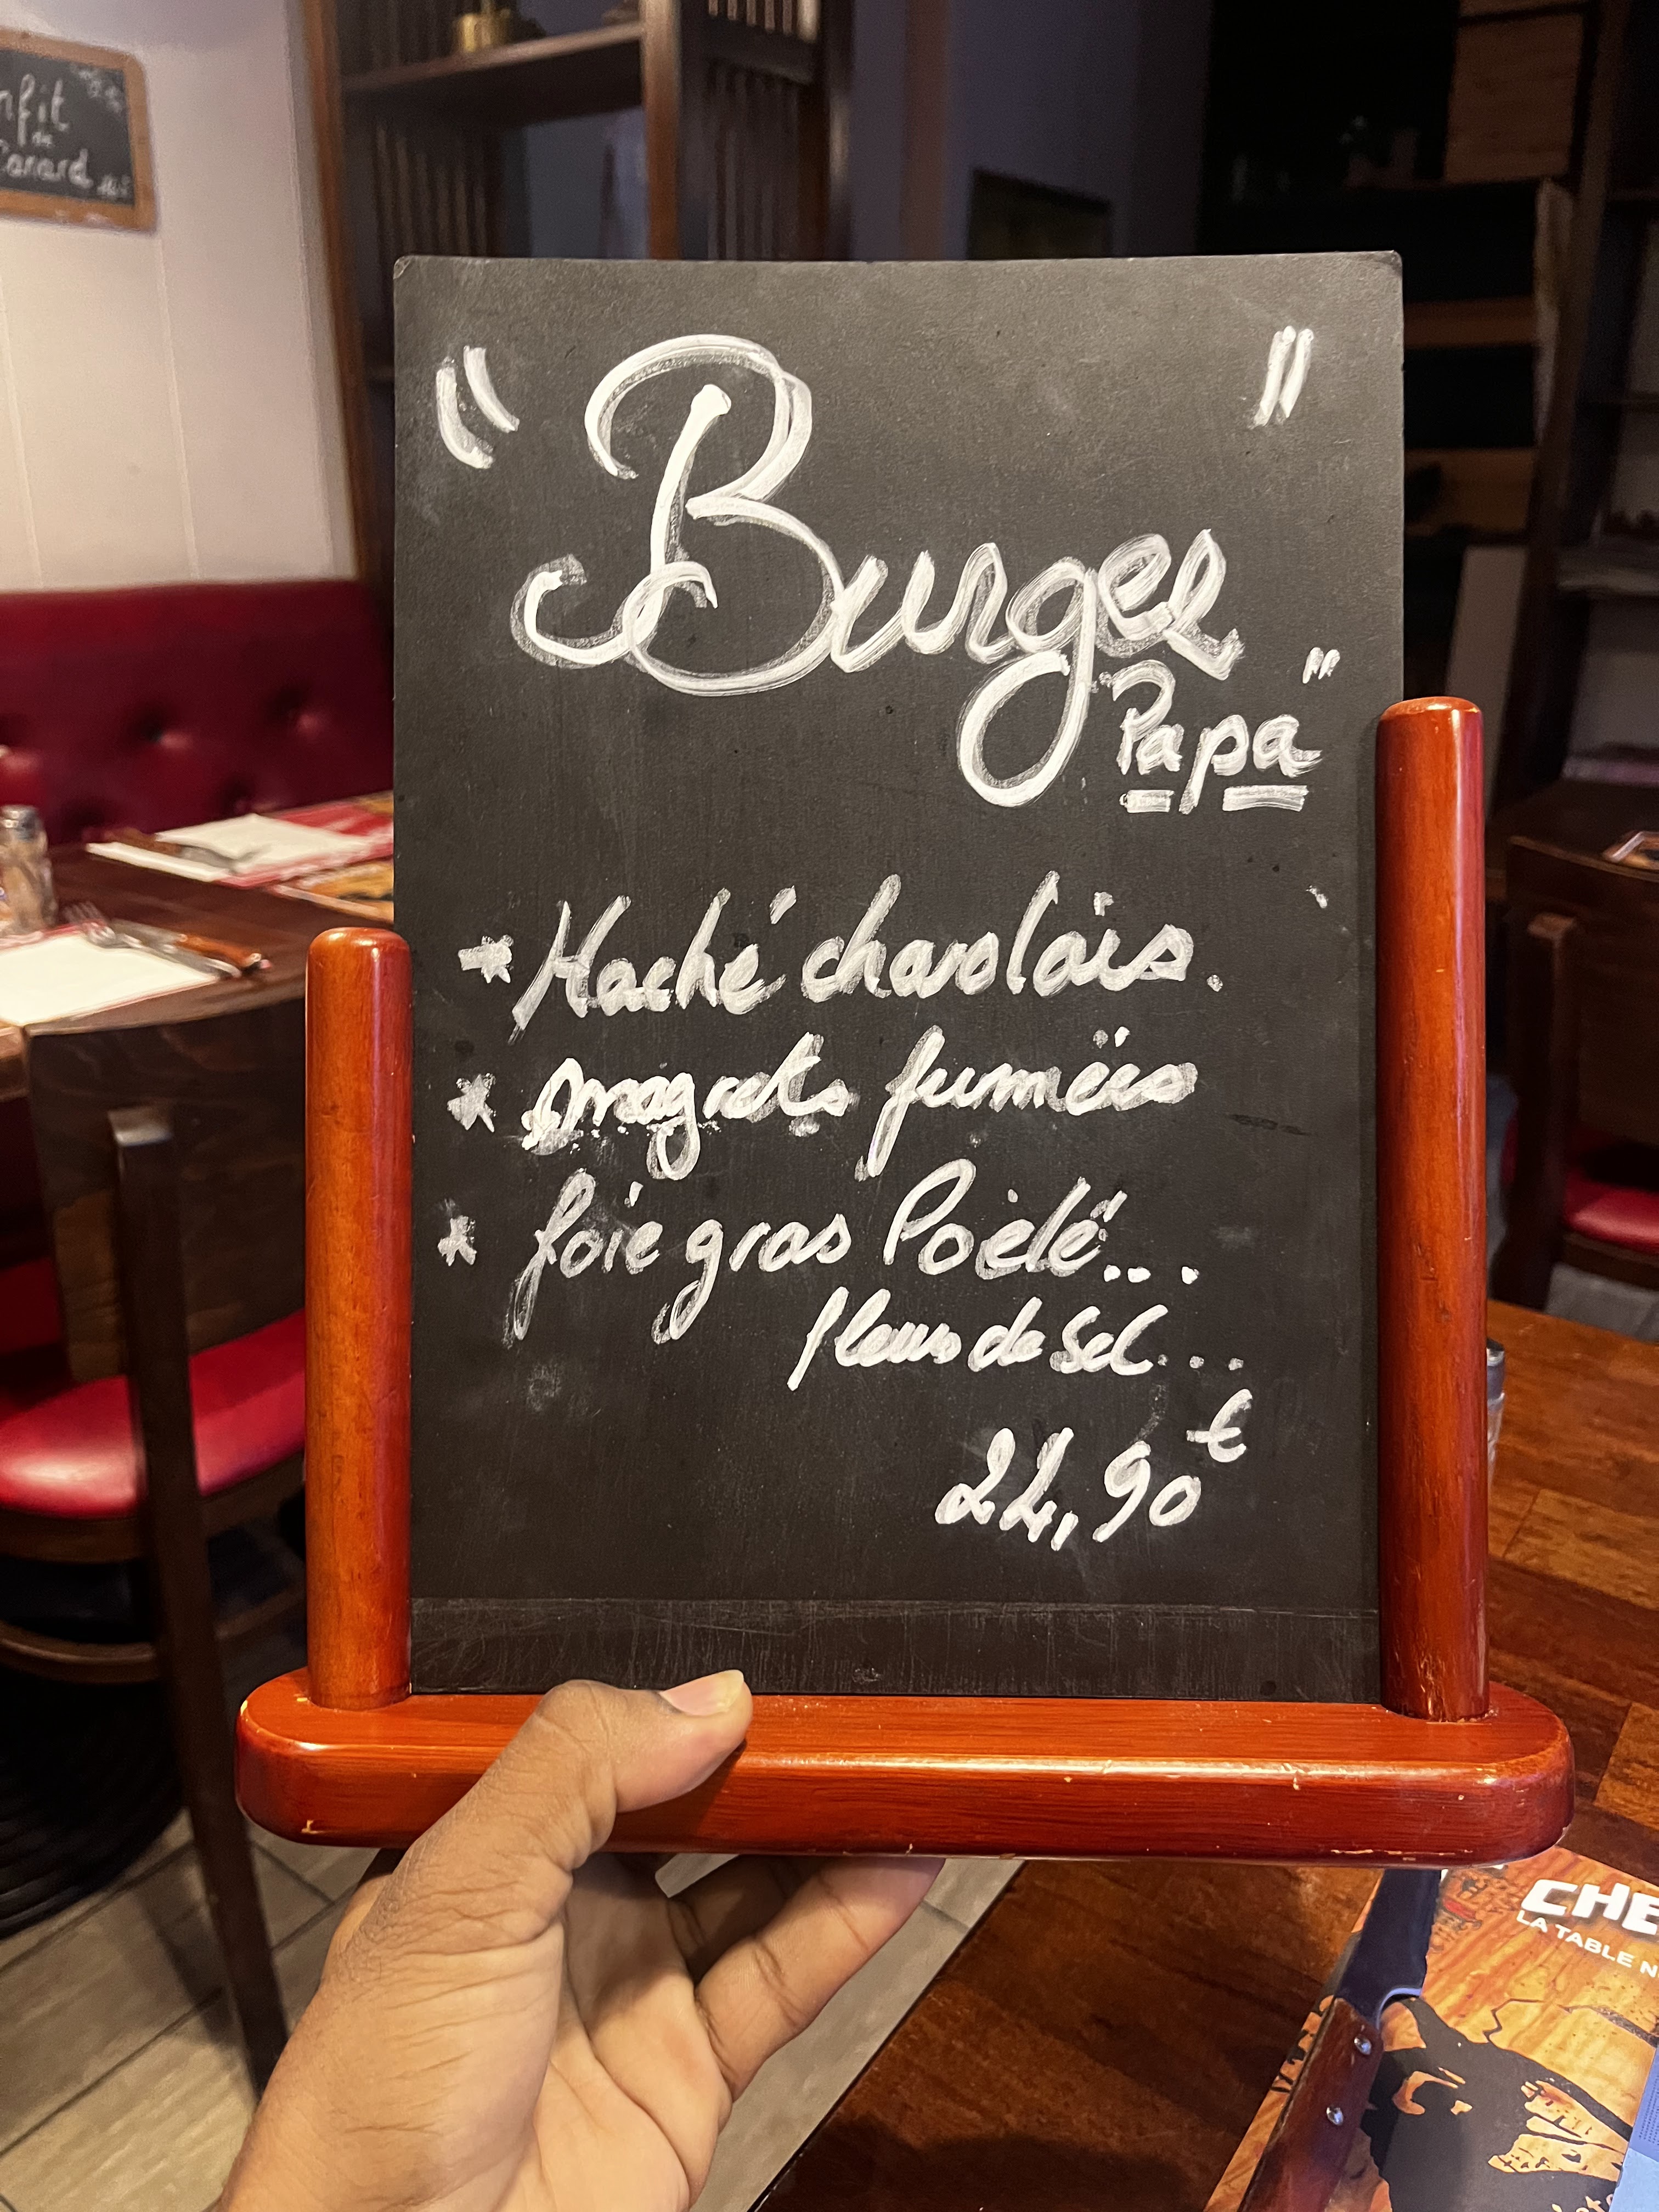 nfit
de
Canard
" Burger "
Papa "
* Haché charolais.
* magrets fumées
* foie gras Poêlé...
fleur de sel...
22,90€
CHE
LA TABLE N